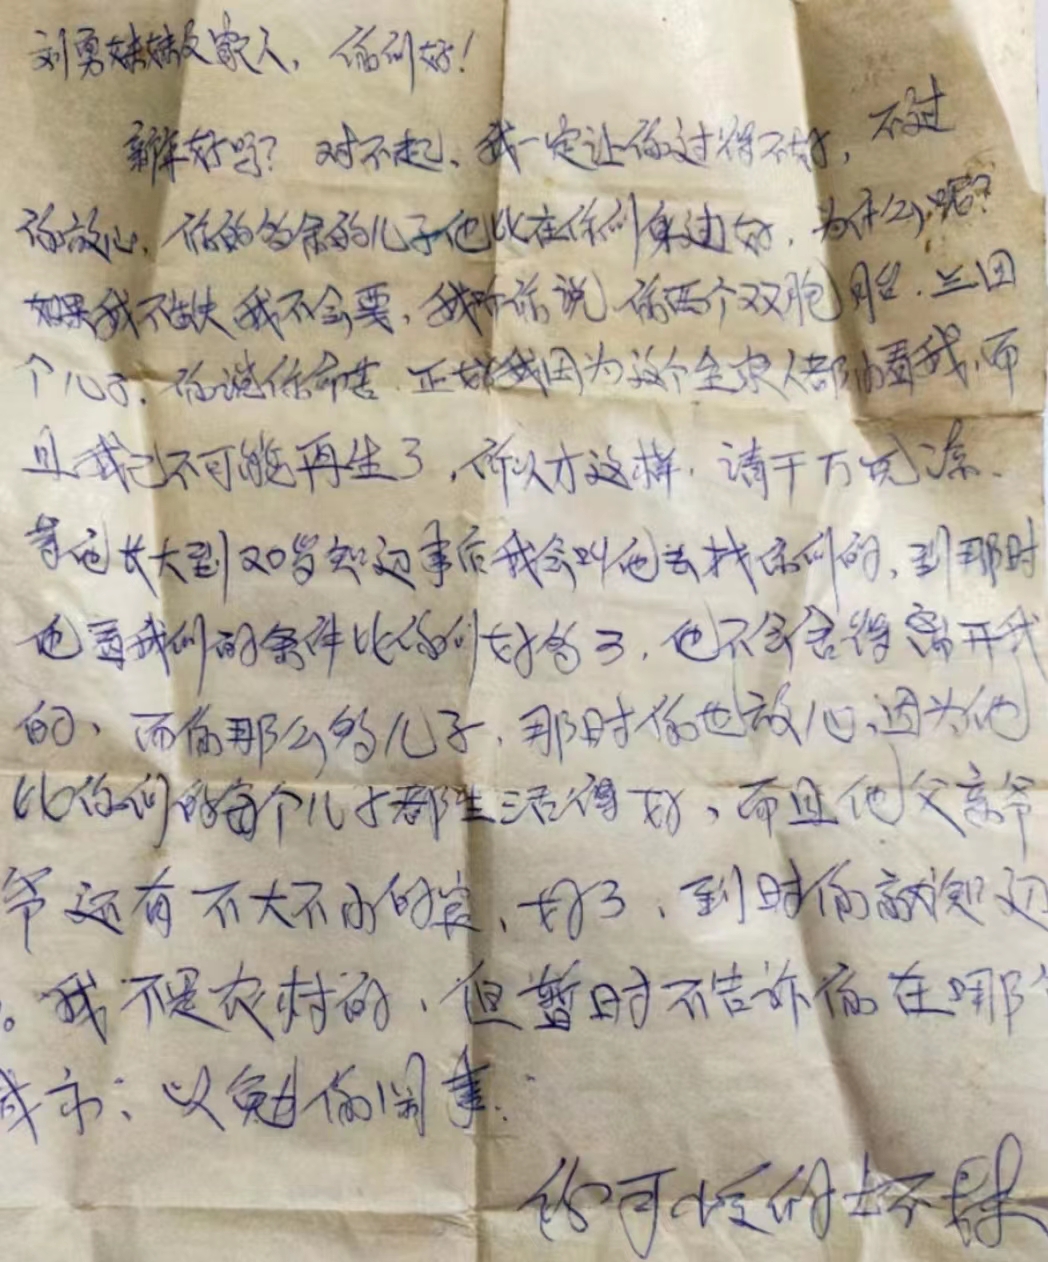 刘勇妹妹及家人，你们好！
新年好吗？对不起、我一定让你过得不好，不过
你放心，你的多余的儿子他比在你们身边好，为什么呢？
如果我不缺我不会要，我听你说你两个双胞胎，三四
个儿子，你说你命苦，正好我因为这个全家人都看我，而
且我已不可能再生了，所以才这样，请千万见谅、
等他长大到20岁知道事后我会叫他去找你们的，到那时
他看我们的条件比你们好多了，也不会舍得离开我
的、而你那么多儿子，那时你也放心，因为他
比你们的每个儿子都生活得好，而且他父亲爷
爷还有不大不小的官，好了，到时你就知道
。我不是农村的，但暂时不告诉你在哪个
城市；以免你们闹事．
你可恨的坏妹